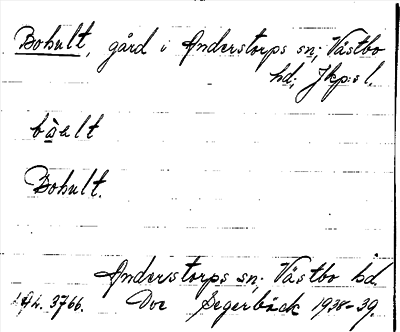 Bohult, gård i Anderstorps sn; Västbo
hd; Jkp:s l.
bòꜵlt
Bohult.
Anderstorps sn; Västbo hd.
3766. Doc Segerbäck 1938-39.